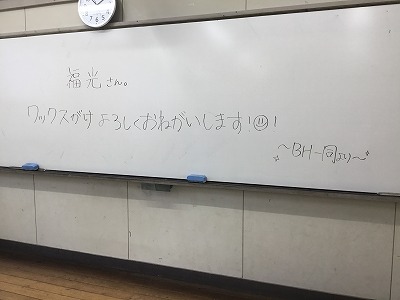 福光さん。
ワックスがけよろしくおねがいします!!
~BH一同より~